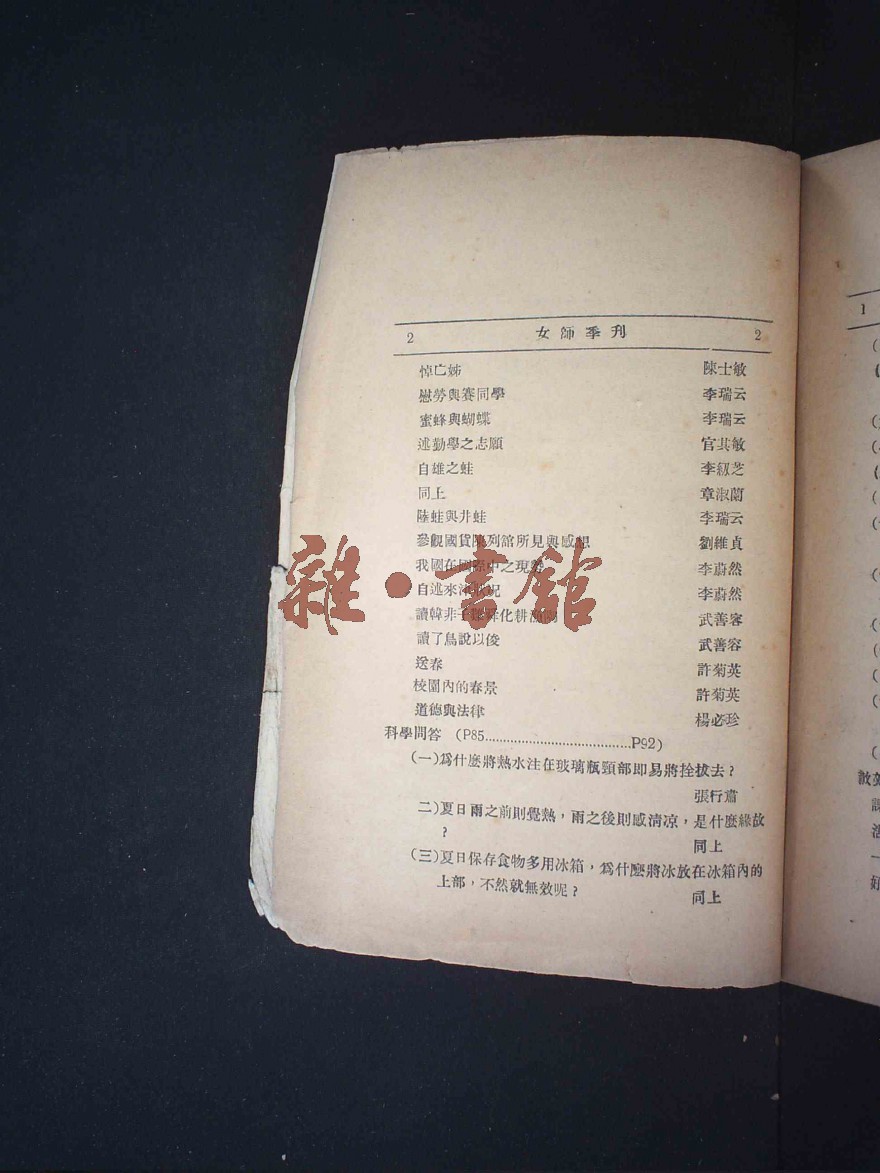 2 女師季刋 2
悼亡姊 陳士敏
慰勞與賽同學 李瑞云
蜜蜂與蝴蝶 李瑞云
述勤學之志願 官其敏
自雄之蛙 李紉芝
同上 章淑蘭
陸蛙與井蛙 李瑞云
參觀國貨陳列舘所見與感想 劉維貞
我國在國際中之現 李蔚然
自述來 狀况 李蔚然
讀韓非子 化耕漁 武善容
讀了鳥說以後 武善容
送春 許菊英
校園內的春景 許菊英
道德與法律 楊必珍
科學問答 (P85......................................P92)
(一)爲什麼將熱水注在玻璃瓶頸部即易將拴拔去？
張行肅
二)夏日雨之前則覺熱，雨之後則感清凉，是什麼緣故
？ 同上
(三)夏日保存食物多用冰箱，爲什麼將冰放在冰箱內的
上部，不然就無效呢？ 同上
雜·書舘
1